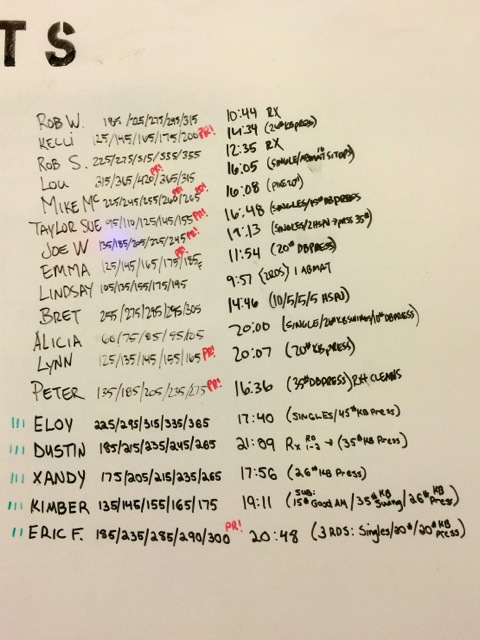 TS
ROB W. 185/225/275/295/315 10:44 RX
KELLI 125/145/165/175/200 PR! 14:34 (26# KB PRESS)
ROB S. 225/275/315/335/355 12:35 RX
LOU 315/365/420/365/315 PR! 16:05
MIKE MC 225/245/255/260/265 PR! PR! 16:08
TAYLOR SUE 95/110/125/145/155 PR! 16:48
JOE W 135/185/205/225/245 PR! 19:13
EMMA 125/145/165/175/185 PR! 11:54 (20# DB PRESS)
LINDSAY 105/135/155/175/195 9:57 (2RDS) 1 ABMAT
BRET 255/275/295/295/305 14:46 (10/5/5/5 HSPU)
ALICIA 66/75/85/95/105 20:00
LYNN 125/135/145/155/165 PR! 20:07 (20# KB PRESS)
PETER 135/185/205/235/275 PR! 16:36 (35# DB PRESS) RH CLEANS
ELOY 225/295/315/335/365 17:40 (SINGLES/45# KB Press)
DUSTIN 185/215/235/245/265 21:09 Rx RD 1-2 → (35# KB Press)
XANDY 175/205/215/235/265 17:56 (26# KB Press)
KIMBER 135/145/155/165/175 19:11 (SUB: 15# Good AM/35# KB Swing/26# KB Press)
ERIC F. 185/235/285/290/300 PR! 20:48 (3 RDS: Singles/20#/20# KB Press)